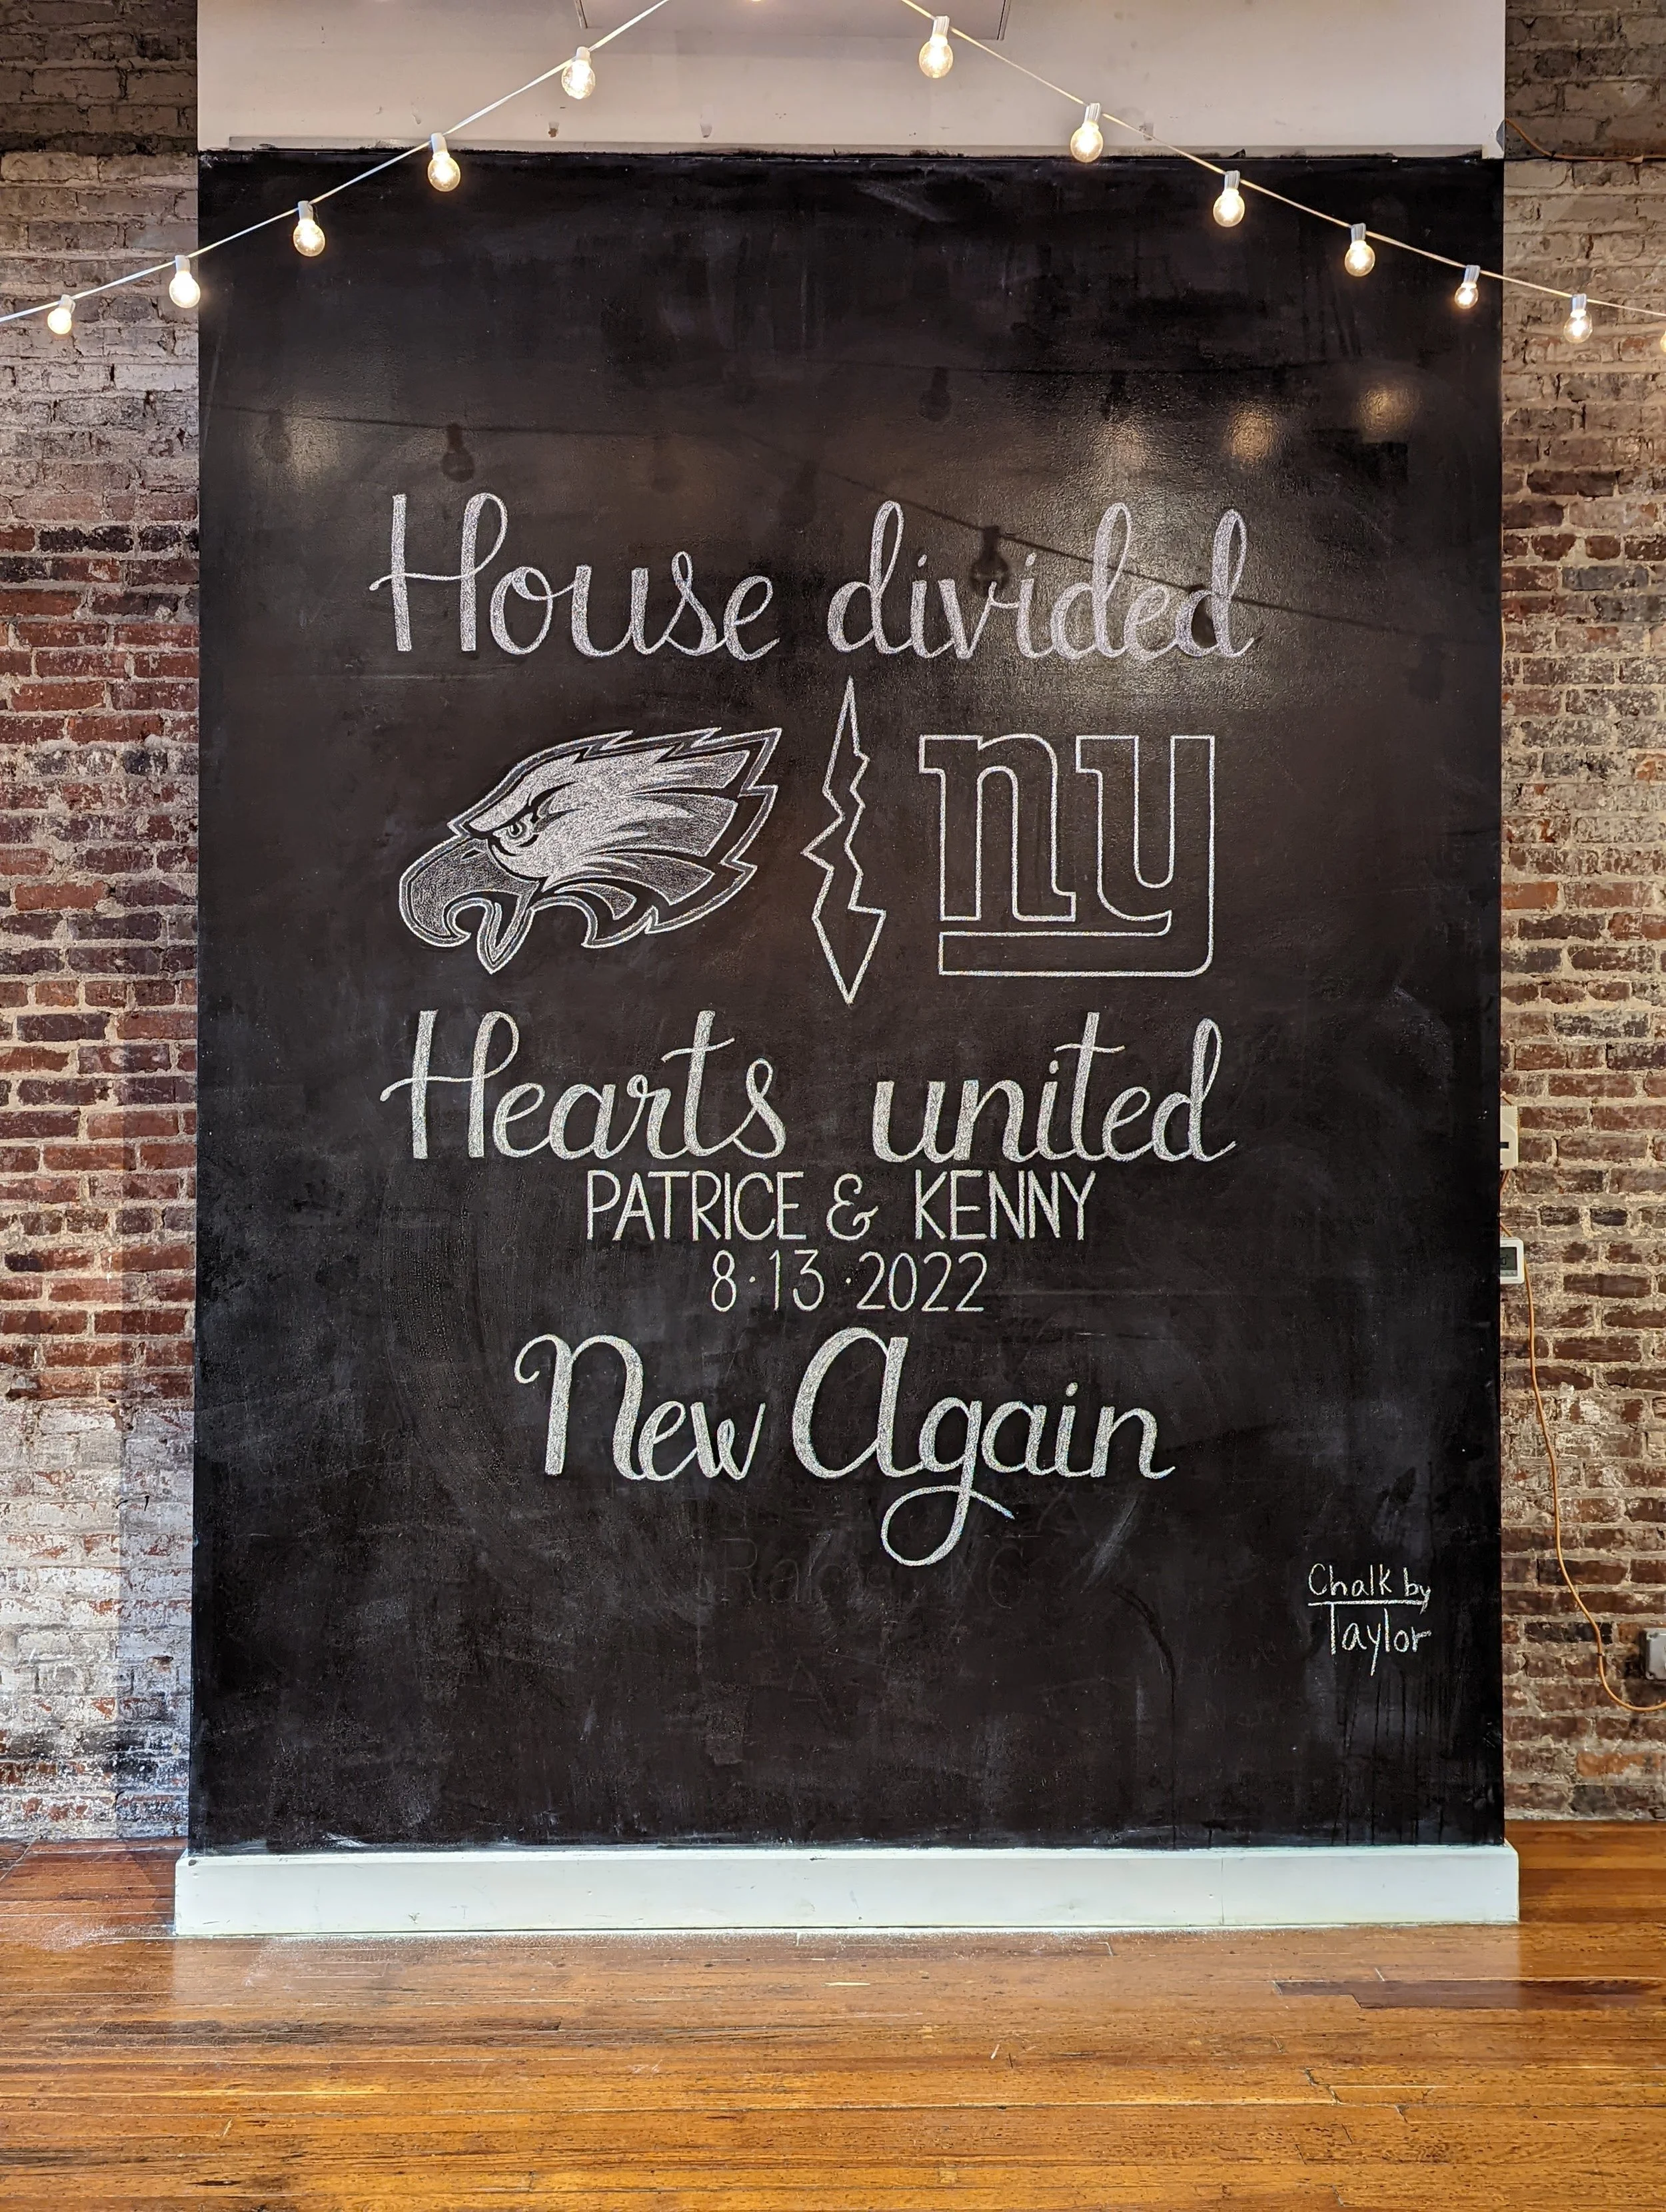 House divided
ny
Hearts united
PATRICE & KENNY
8·13·2022
New Again
Chalk by
Taylor